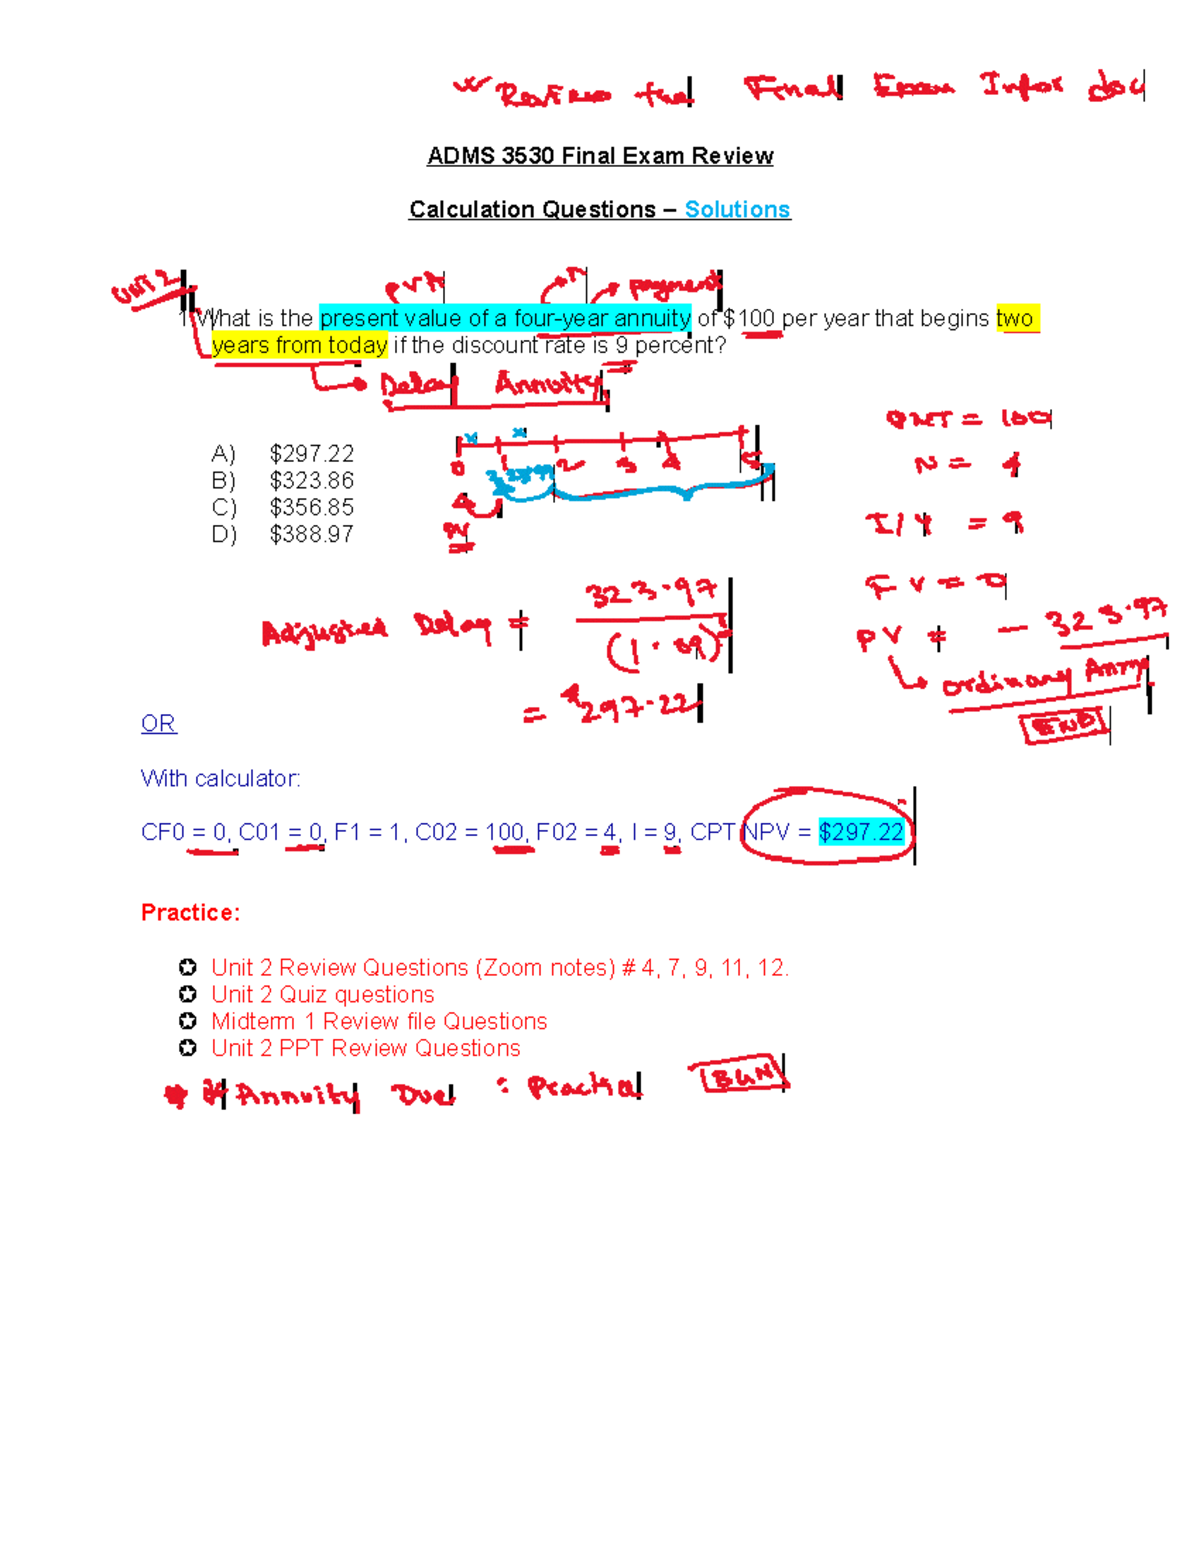 Review the Final Exam Infor doc
ADMS 3530 Final Exam Review
Calculation Questions – Solutions
UNIT 2
PVA n payment
1 What is the present value of a four-year annuity of $100 per year that begins two
years from today if the discount rate is 9 percent?
Delay Annuity
A) $297.22
B) $323.86
C) $356.85
D) $388.97
0 1 2 3 4 5
323.97
PV
PMT = 100
N = 4
I/Y = 9
FV = 0
PV = - 323.97
ordinary
END
Adjusted Delay = 323.97
(1.09)
= $297.22
OR
With calculator:
CF0 = 0, C01 = 0, F1 = 1, C02 = 100, F02 = 4, I = 9, CPT NPV = $297.22
Practice:
✪ Unit 2 Review Questions (Zoom notes) # 4, 7, 9, 11, 12.
✪ Unit 2 Quiz questions
✪ Midterm 1 Review file Questions
✪ Unit 2 PPT Review Questions
Annuity Due : BGN